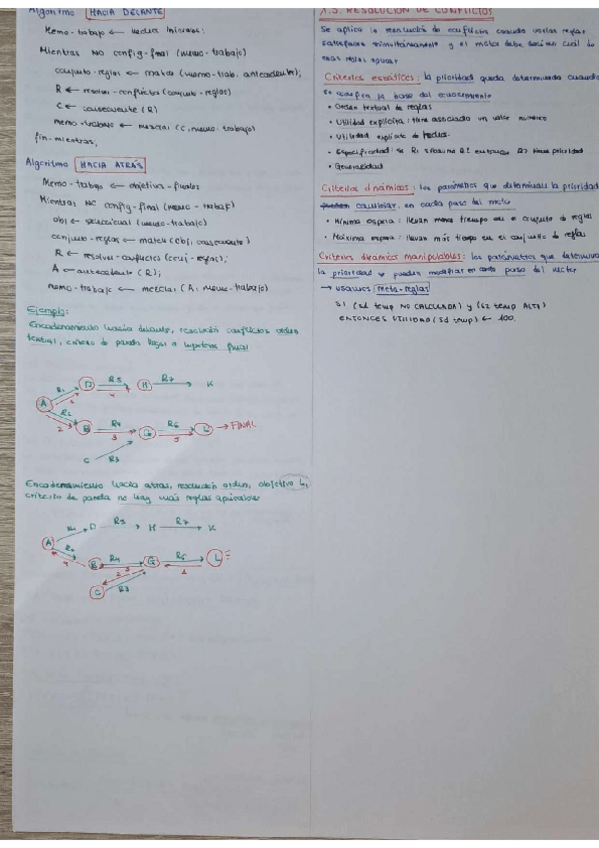 Algoritmo HACIA DELANTE
Memo-trabajo ← hechos iniciales;
Mientras NO config-final (memo-trabajo)
conjunto-reglas ← match (memo-trab, antecedente);
R ← resolver-conflictos (conjunto-reglas)
C ← consecuente (R)
memo-trabajo ← mezclar (C, memo-trabajo)
fin-mientras;
Algoritmo HACIA ATRÁS
Memo-trabajo ← objetivos-finales
Mientras NO config-final (memo-trabajo)
obj ← seleccionar (memo-trabajo)
conjunto-reglas ← match (obj, consecuente)
R ← resolver-conflictos (conj-reglas);
A ← antecedente (R);
memo-trabajo ← mezclar (A, memo-trabajo)
Ejemplo:
Encadenamiento hacia delante, resolución conflictos orden
textual, criterio de parada llegar a hipótesis final
A R1 1 D R5 4 H R7 K
R2 2 B R4 3 G R6 5 L → FINAL
C R3
Encadenamiento hacia atrás, resolución orden, objetivo L,
criterio de parada no hay más reglas aplicables
A D R5 H R7 K
R2 4 B R4 2 3 G R6 1 L
C R3
RESOLUCIÓN DE CONFLICTOS
Se aplica la resolución de conflictos cuando varias reglas
satisfacen simultáneamente y el motor debe decidir cuál de
esas reglas aplicar
Criterios estáticos: la prioridad queda determinada cuando
se construye la base del conocimiento
• Orden textual de reglas
• Utilidad explícita: tiene asociado un valor numérico
• Utilidad explícita de hechos.
• Especificidad: se R1 R2 entonces R1 tiene prioridad
• Generalidad
Criterios dinámicos: los parámetros que determinan la prioridad
calcular, en cada paso del motor
• Mínima espera: llevan menos tiempo en el conjunto de reglas
• Máxima espera: llevan más tiempo en el conjunto de reglas
Criterios dinámicos manipulables: los parámetros que determinan
la prioridad se pueden modificar en cada paso del motor
→ usamos meta-reglas
SI (sd temp NO CALCULADA) y (sd temp ALTA)
ENTONCES UTILIDAD (sd temp) ← 100.